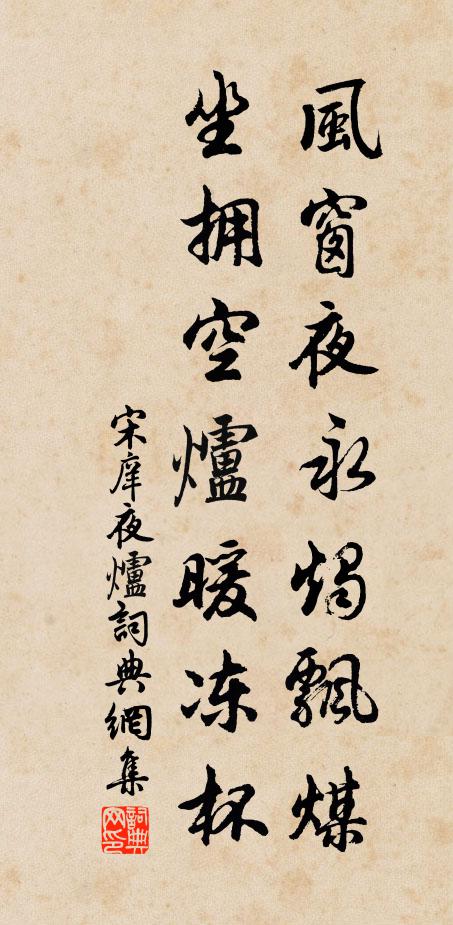 風窗夜永燭飄煤
坐拥空爐暖冻杯
宋庠夜爐詞典網集
詞典网印